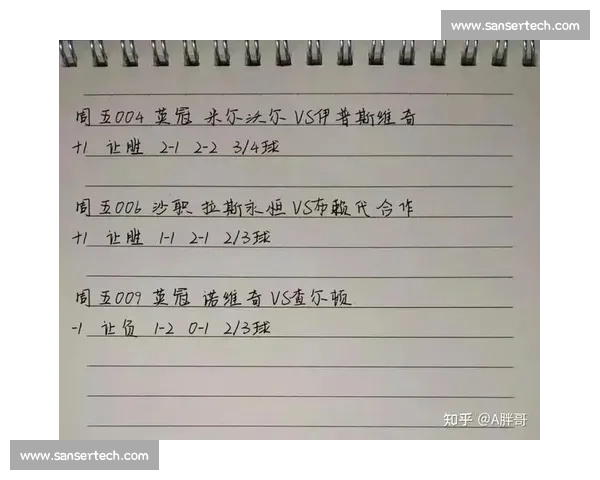 www.sansertech.com
周五004 英冠 米尔沃尔 VS伊普斯维奇
+1 让胜 2-1 2-2 3/4球
周五006 沙职 拉斯永恒 VS布赖代合作
+1 让胜 1-1 2-1 2/3球
周五009 英冠 诺维奇 VS查尔顿
-1 让负 1-2 0-1 2/3球
知乎 @A胖哥
www.sansertech.com